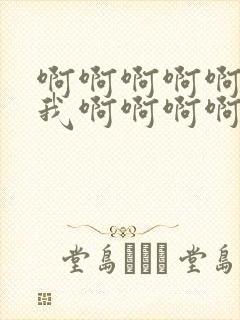 啊啊啊啊啊
我啊啊啊啊
堂岛 堂岛